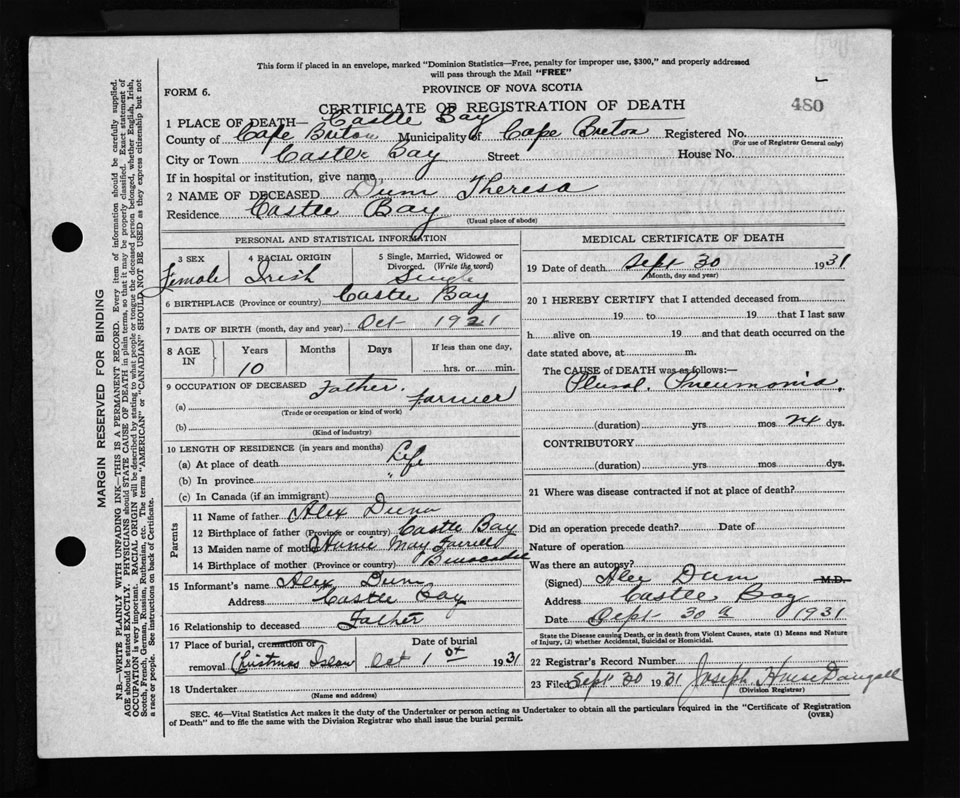 This form if placed in an envelope, marked "Dominion Statistics—Free, penalty for improper use, $300," and properly addressed
will pass through the Mail "FREE"
FORM 6.
PROVINCE OF NOVA SCOTIA
CERTIFICATE OF REGISTRATION OF DEATH
480
1 PLACE OF DEATH— Castle Bay
County of Cape Breton Municipality of Cape Breton Registered No.
(For use of Registrar General only)
City or Town Castle Bay Street House No.
If in hospital or institution, give name
2 NAME OF DECEASED Dunn Theresa
Residence Castle Bay
(Usual place of abode)
PERSONAL AND STATISTICAL INFORMATION
3 SEX 4 RACIAL ORIGIN 5 Single, Married, Widowed or
Divorced. (Write the word)
Female Irish Single
6 BIRTHPLACE (Province or country) Castle Bay
7 DATE OF BIRTH (month, day and year) Oct 1921
8 AGE IN Years Months Days If less than one day,
10 hrs. or min.
9 OCCUPATION OF DECEASED Father.
(a) Farmer
(Trade or occupation or kind of work)
(b)
(Kind of industry)
10 LENGTH OF RESIDENCE (in years and months)
(a) At place of death Life
(b) In province "
(c) In Canada (if an immigrant)
Parents
11 Name of father Alex Dunn
12 Birthplace of father (Province or country) Castle Bay
13 Maiden name of mother May Farrell
14 Birthplace of mother (Province or country)
15 Informant's name Alex Dunn
Address Castle Bay
16 Relationship to deceased Father
17 Place of burial, cremation or Date of burial
removal Christmas Island Oct 1st 1931
18 Undertaker
(Name and address)
MEDICAL CERTIFICATE OF DEATH
19 Date of death Sept 30 1931
(Month, day and year)
20 I HEREBY CERTIFY that I attended deceased from
19 to 19 that I last saw
h alive on 19 and that death occurred on the
date stated above, at m.
The CAUSE of DEATH was as follows:—
Plural. Pneumonia.
(duration) yrs mos dys.
CONTRIBUTORY
(duration) yrs mos dys.
21 Where was disease contracted if not at place of death?
Did an operation precede death? Date of
Nature of operation
Was there an autopsy?
(Signed) Alex Dunn M.D.
Address Castle Bay
Date Sept 30th 1931
State the Disease causing Death, or in death from Violent Causes, state (1) Means and Nature
of Injury, (2) whether Accidental, Suicidal or Homicidal.
22 Registrar's Record Number
23 Filed Sept 30 1931 Joseph
(Division Registrar)
SEC. 46—Vital Statistics Act makes it the duty of the Undertaker or person acting as Undertaker to obtain all the particulars required in the "Certificate of Registration
of Death" and to file the same with the Division Registrar who shall issue the burial permit.
(OVER)
MARGIN RESERVED FOR BINDING
N.B.—WRITE PLAINLY WITH UNFADING INK—THIS IS A PERMANENT RECORD. Every item of information should be carefully supplied.
AGE should be stated EXACTLY. PHYSICIANS should STATE CAUSE OF DEATH in plain terms, so that it may be properly classified. Exact statement of
OCCUPATION is very important. RACIAL ORIGIN will be described by stating to what people or tongue the deceased person belonged, whether English, Irish,
Scotch, French, German, Russian, Ruthenian, etc. The terms "AMERICAN" or "CANADIAN" SHOULD NOT BE USED as they express citizenship but not
a race or people. See instructions on back of Certificate.